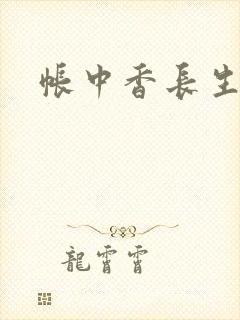 帳中香長生
龍霄霄